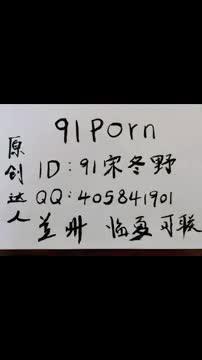 91Porn
原创达人
ID:91宋冬野
QQ:405841901
兰州 临夏可联